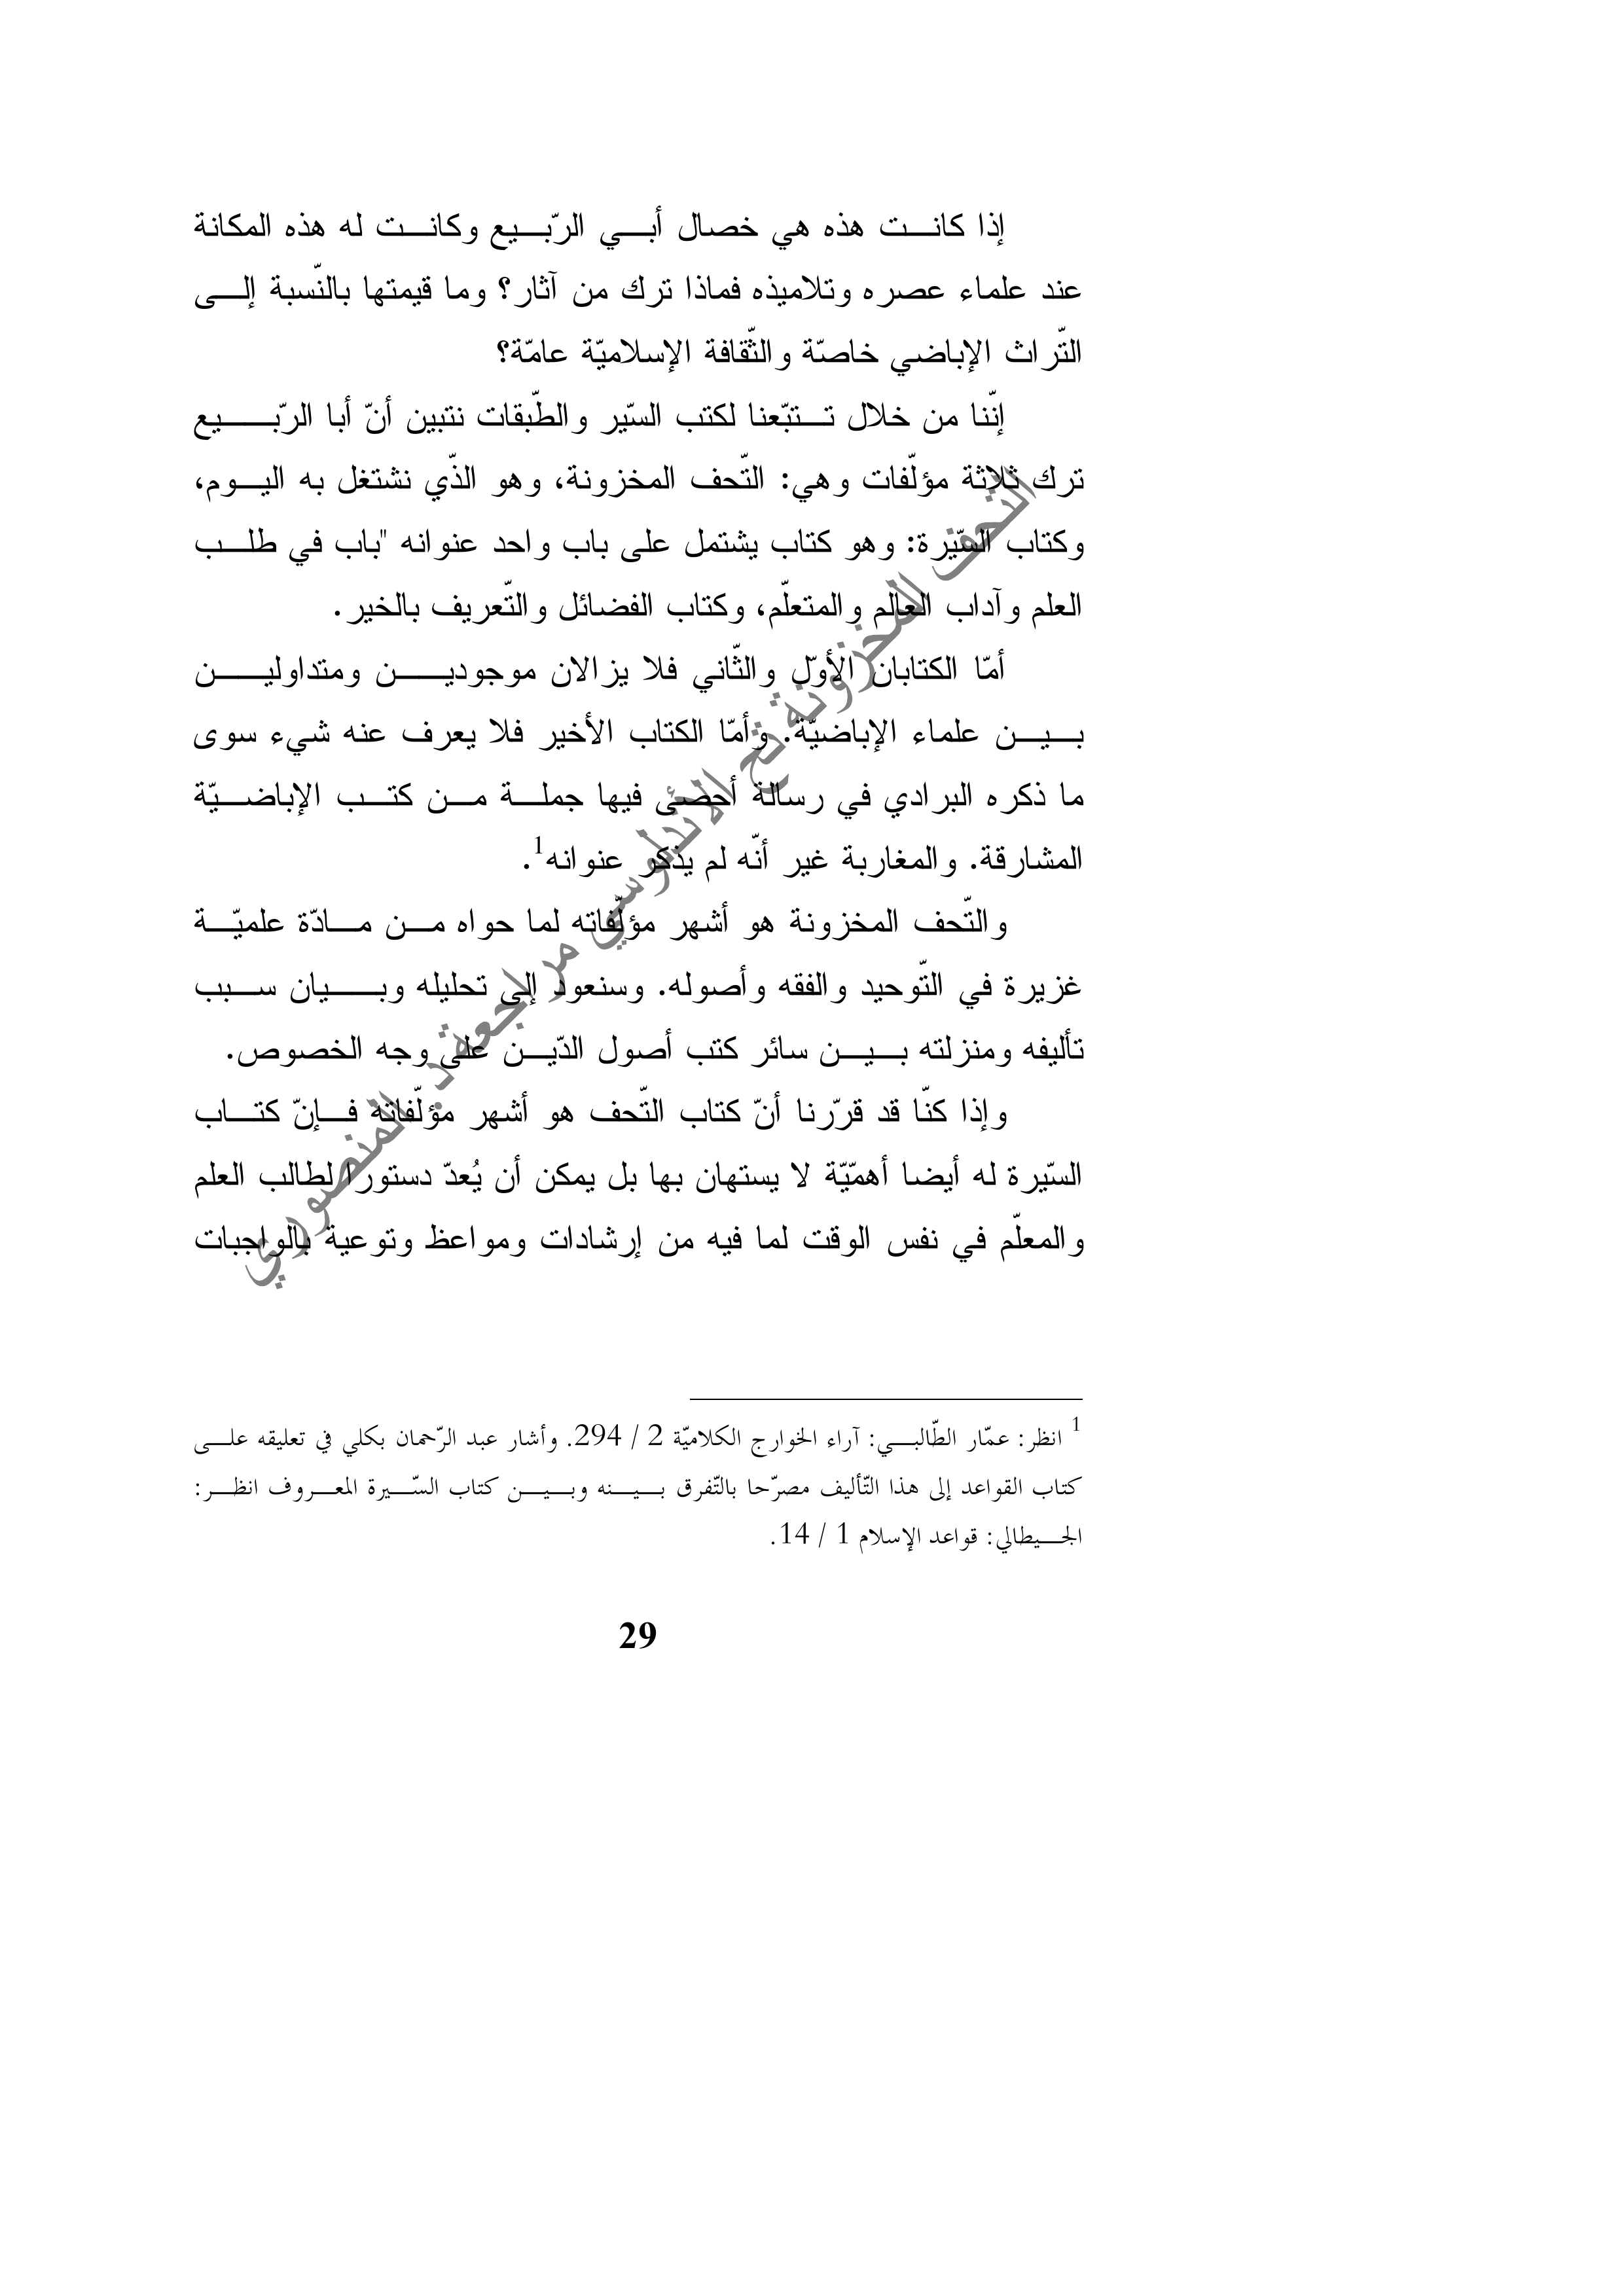 إذا كانت هذه هي خصال أبي الرّبيع وكانت له هذه المكانة
عند علماء عصره وتلاميذه فماذا ترك من آثار؟ وما قيمتها بالنّسبة إلى
التّراث الإباضي خاصّة والثّقافة الإسلاميّة عامّة؟
إنّنا من خلال تتبّعنا لكتب السّير والطّبقات نتبين أنّ أبا الرّبيع
ترك ثلاثة مؤلّفات وهي: التّحف المخزونة، وهو الذّي نشتغل به اليوم،
وكتاب السّيرة: وهو كتاب يشتمل على باب واحد عنوانه "باب في طلب
العلم وآداب العالم والمتعلّم، وكتاب الفضائل والتّعريف بالخير.
أمّا الكتابان الأوّل والثّاني فلا يزالان موجودين ومتداولين
بين علماء الإباضيّة. وأمّا الكتاب الأخير فلا يعرف عنه شيء سوى
ما ذكره البرادي في رسالة أحصى فيها جملة من كتب الإباضيّة
المشارقة. والمغاربة غير أنّه لم يذكر عنوانه1.
والتّحف المخزونة هو أشهر مؤلّفاته لما حواه من مادّة علميّة
غزيرة في التّوحيد والفقه وأصوله. وسنعود إلى تحليله وبيان سبب
تأليفه ومنزلته بين سائر كتب أصول الدّين على وجه الخصوص.
وإذا كنّا قد قرّرنا أنّ كتاب التّحف هو أشهر مؤلّفاته فإنّ كتاب
السّيرة له أيضا أهمّيّة لا يستهان بها بل يمكن أن يُعدّ دستورا لطالب العلم
والمعلّم في نفس الوقت لما فيه من إرشادات ومواعظ وتوعية بالواجبات
التحف المخزونة تح الأندلوسي مراجعة د. المنصوري
1 انظر: عمّار الطّالبي: آراء الخوارج الكلاميّة 2 / 294. وأشار عبد الرّحمان بكلي في تعليقه على
كتاب القواعد إلى هذا التّأليف مصرّحا بالتّفرق بينه وبين كتاب السّيرة المعروف انظر:
الجيطالي: قواعد الإسلام 1 / 14.
29